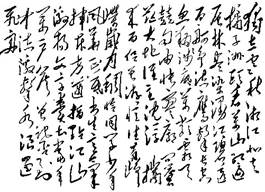 独立寒秋湘江北去
橘子洲头看万山红遍
层林尽染漫江碧透
百舸争流鹰击长空
鱼翔浅底万类霜天
竞自由怅寥廓问苍
茫大地谁主沉浮携
来百侣曾游忆往昔
峥嵘岁月稠恰同学少年
风华正茂书生意气
挥斥方遒指点江山
激扬文字粪土当年
万户侯曾记否到
中流击水浪遏
飞舟